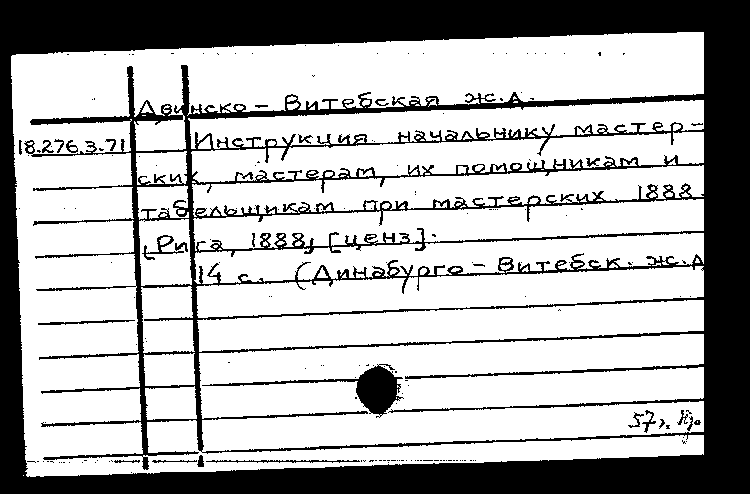 Двинско - Витебская ж.д.
18.276.3.71 Инструкция начальнику мастер-
ских, мастерам, их помощникам и
табельщикам при мастерских 1888.
[Рига, 1888, [ценз].
14 с. (Динабурго - Витебск. ж.д
57г.